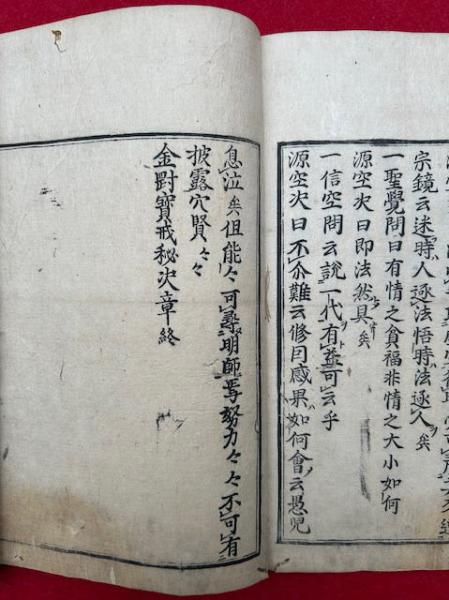 宗鏡云迷時人逐法悟時法逐人矣
一聖覺問曰有情之貪福非情之大小如何
源空決曰即法然具矣
一信空問云説一代有益可云乎
源空決曰不尒難云修因感果如何會云愚児
息泣矣但能々可尋明師焉努力々々不可有
披露穴賢々々
金剛寶戒秘決章終